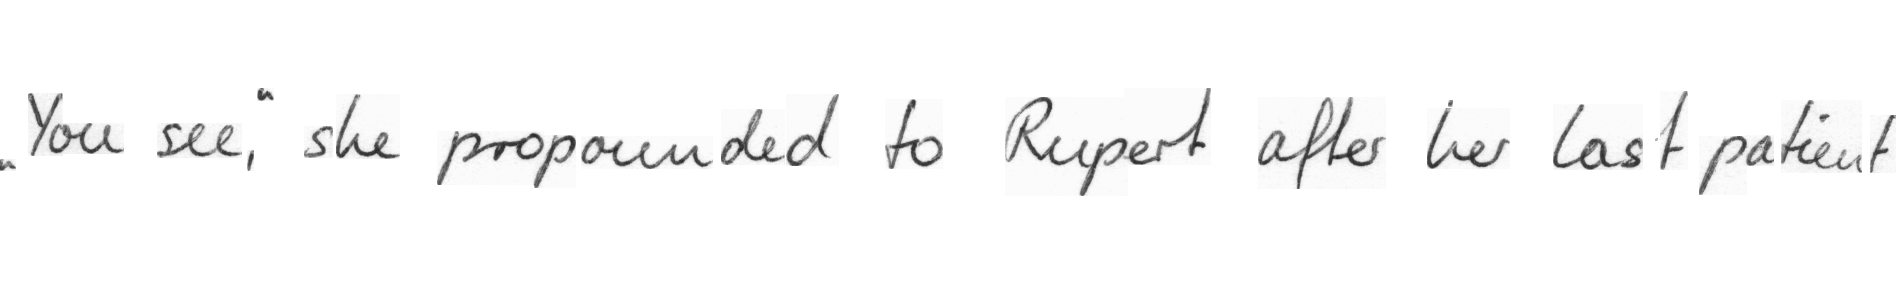 „You see," she propounded to Rupert after her last patient